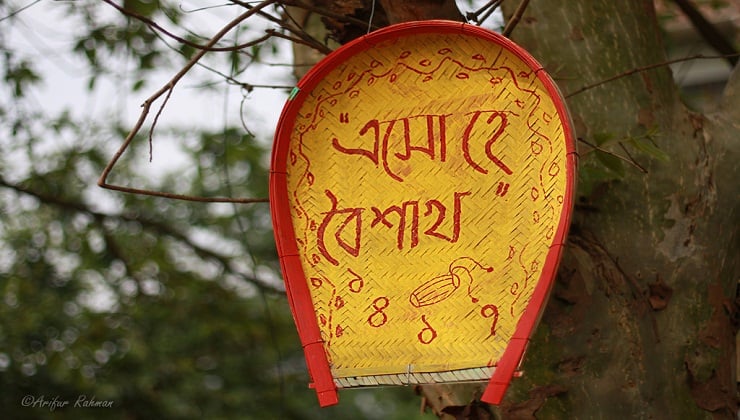 "এসো হে
বৈশাখ"
১৪১৭
©Arifur Rahman